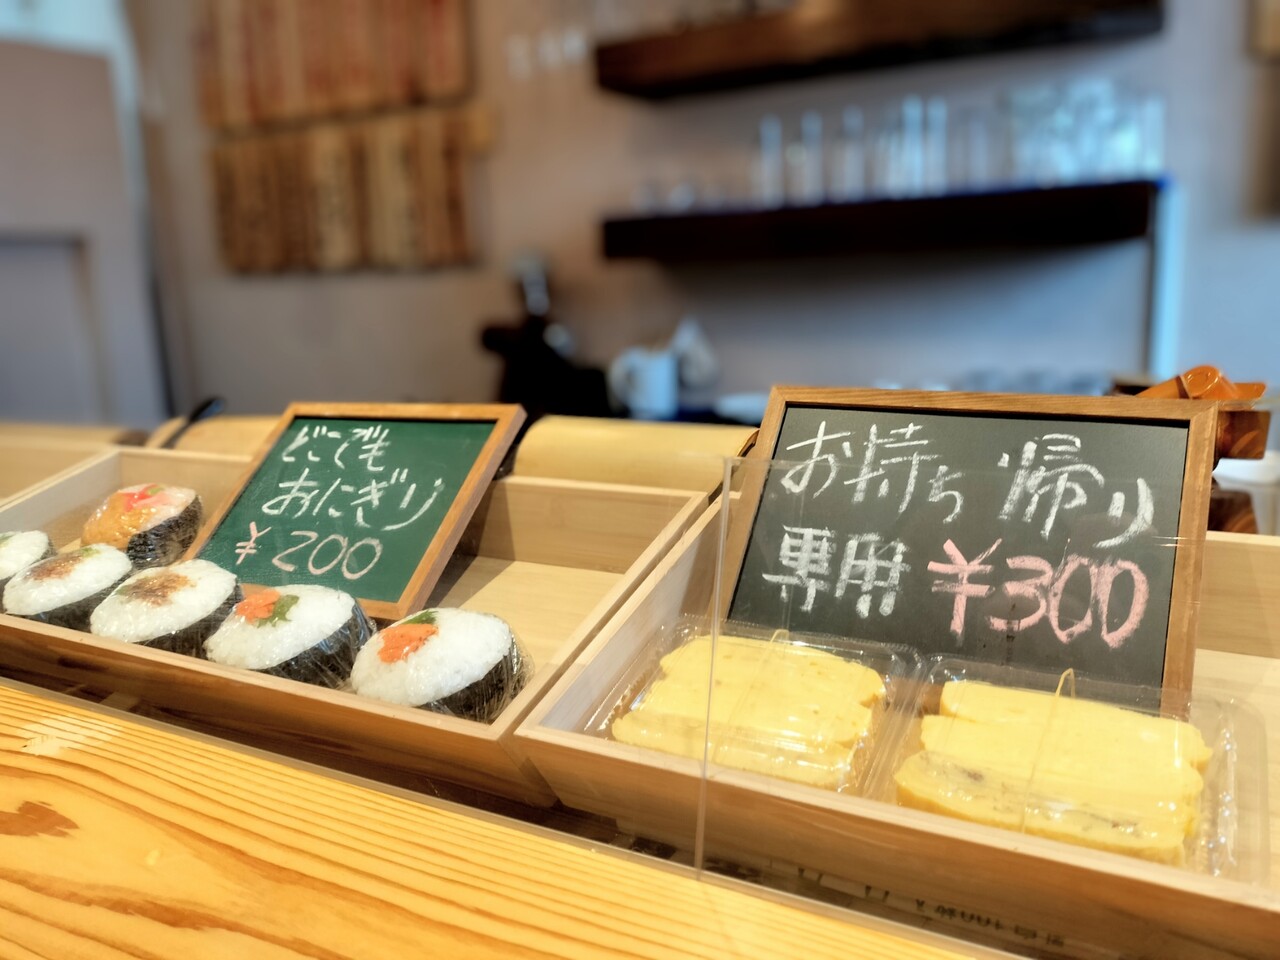 どこでも
おにぎり
¥200
お持ち帰り
専用 ¥300